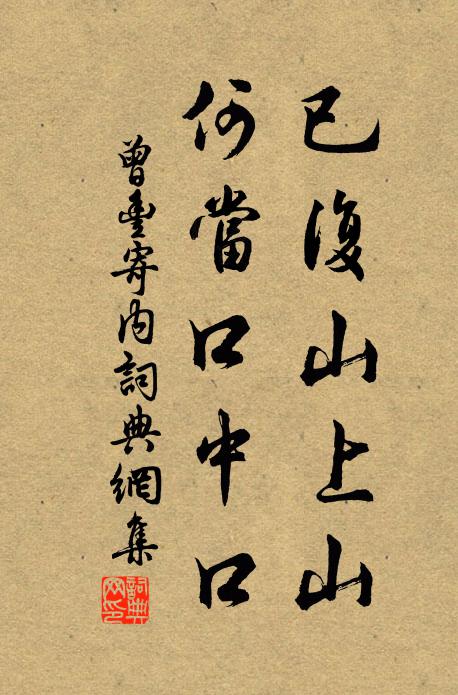 已復山上山
何當口中口
曾豊寄内詞典網集
詞典網印